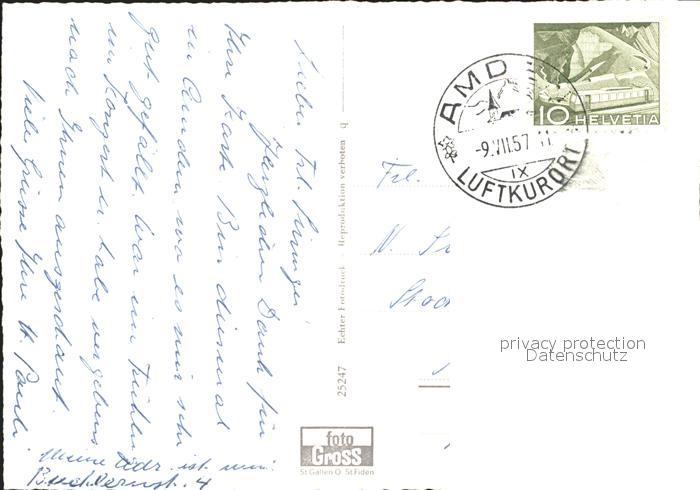 Liebe Frl.
Herzlichen Dank für
Ihre Karte. Bin diesmal
in Amden, wo es mir sehr
gut gefällt. War im Frühling
im Konzert u. habe vergebens
nach Ihnen ausgeschaut.
Viele Grüsse Ihre H.
Meine Adr. ist nun:
4
25247 Echter Fotodruck – Reproduktion verboten q
foto
GROSS
St Gallen O St Fiden
AMD
-9.VII.57
IX
LUFTKURORT
10 HELVETIA
Frl.
privacy protection
Datenschutz